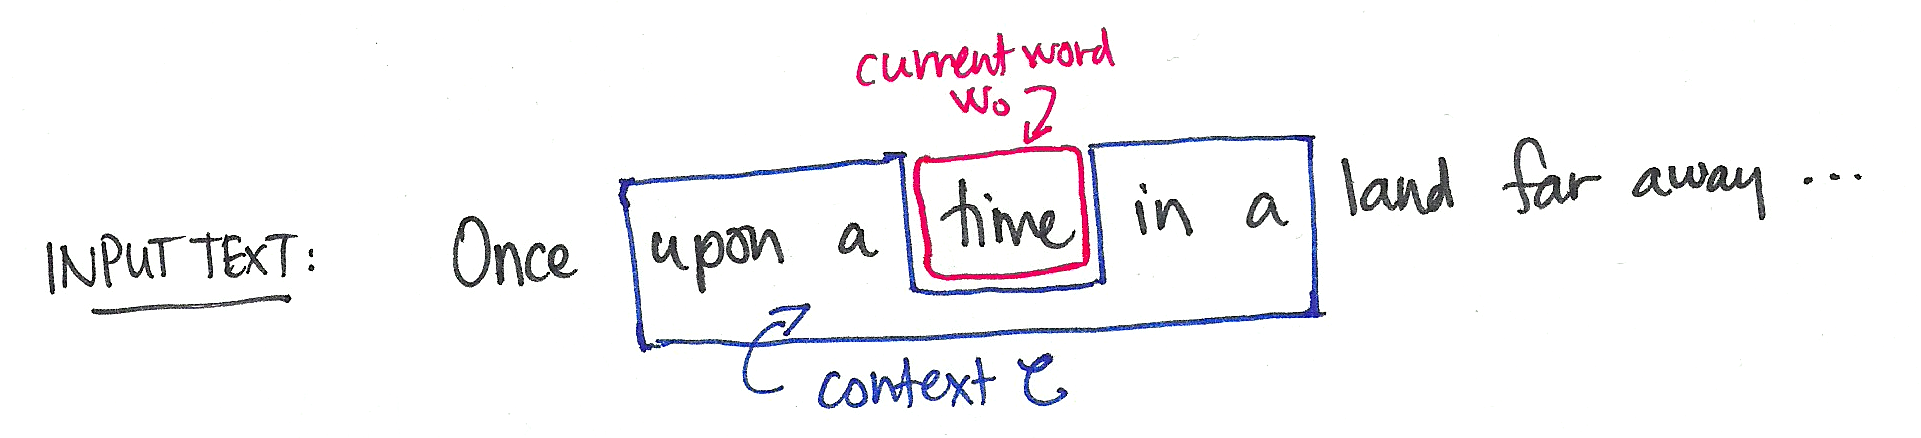 current word
w₀
INPUT TEXT: Once upon a time in a land far away ...
context C